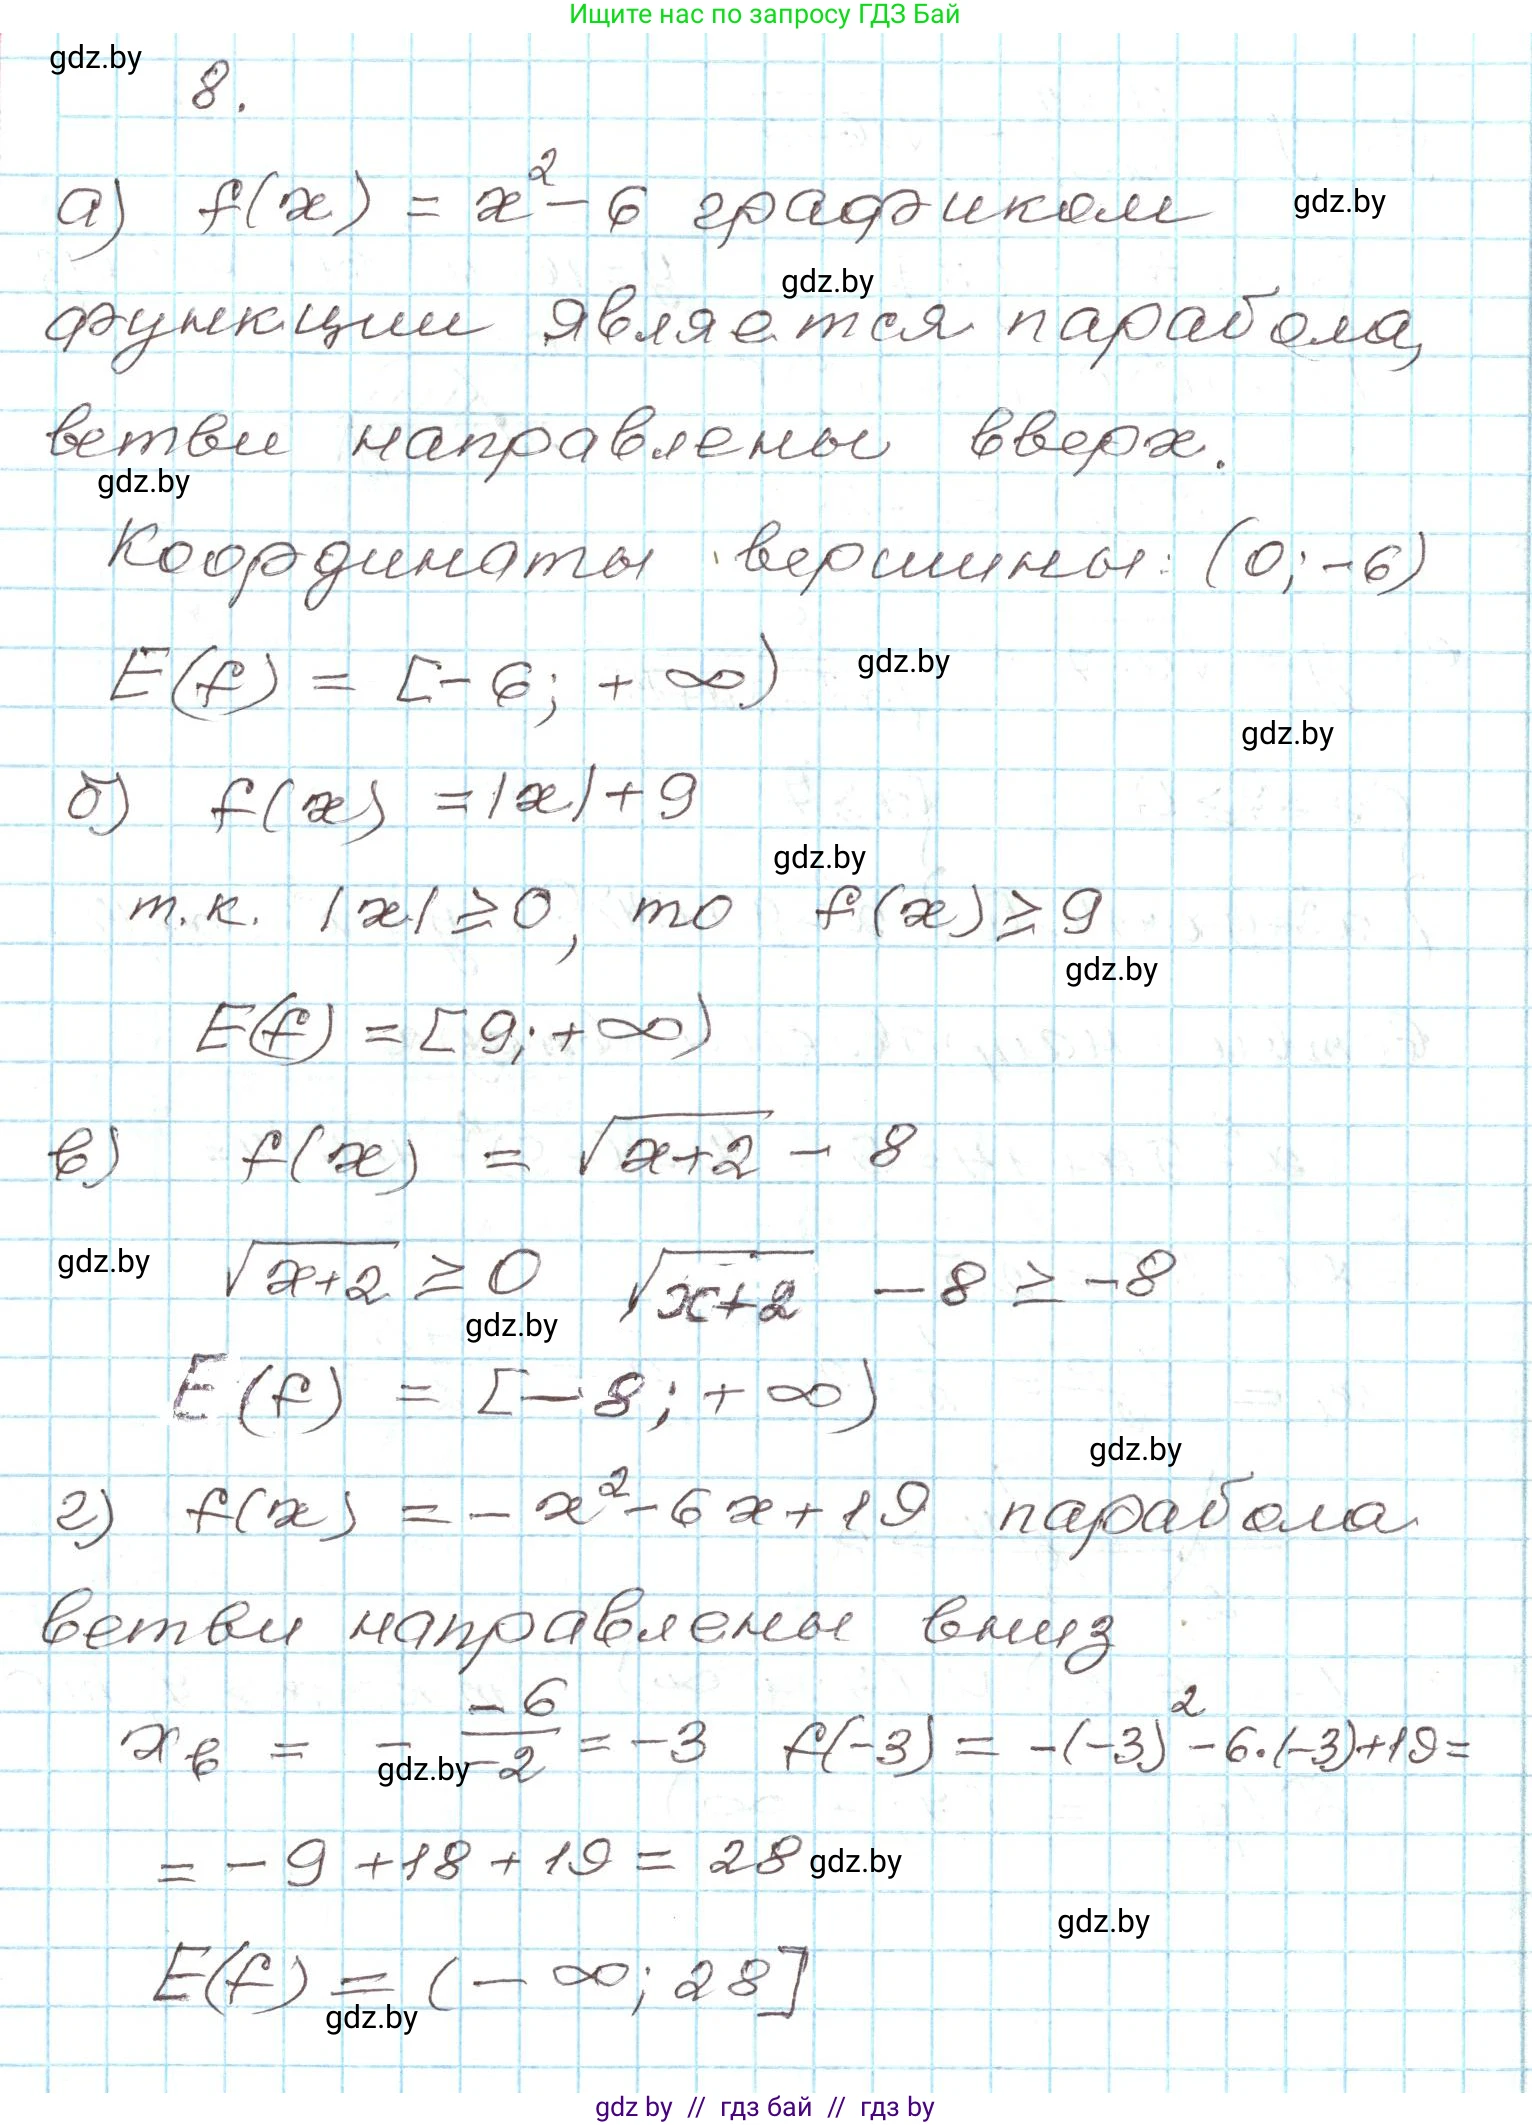 Ищите нас по запросу ГДЗ Бай
gdz.by
8.
а) f(x) = x² - 6 графиком
gdz.by
gdz.by
функции является парабола,
ветви направлены вверх.
gdz.by
Координаты вершины: (0; -6)
E(f) = [-6; +∞)
gdz.by
gdz.by
б) f(x) = |x| + 9
gdz.by
т.к. |x| ≥ 0, то f(x) ≥ 9
gdz.by
E(f) = [9; +∞)
в) f(x) = √(x+2) - 8
gdz.by
√(x+2) ≥ 0 √(x+2) - 8 ≥ -8
gdz.by
E(f) = [-8; +∞)
gdz.by
г) f(x) = -x² - 6x + 19 парабола
ветви направлены вниз
xв = - -6/-2 = -3 f(-3) = -(-3)² - 6·(-3) + 19 =
gdz.by
= -9 + 18 + 19 = 28
gdz.by
gdz.by
E(f) = (-∞; 28]
gdz.by
gdz by // гдз бай // гдз by